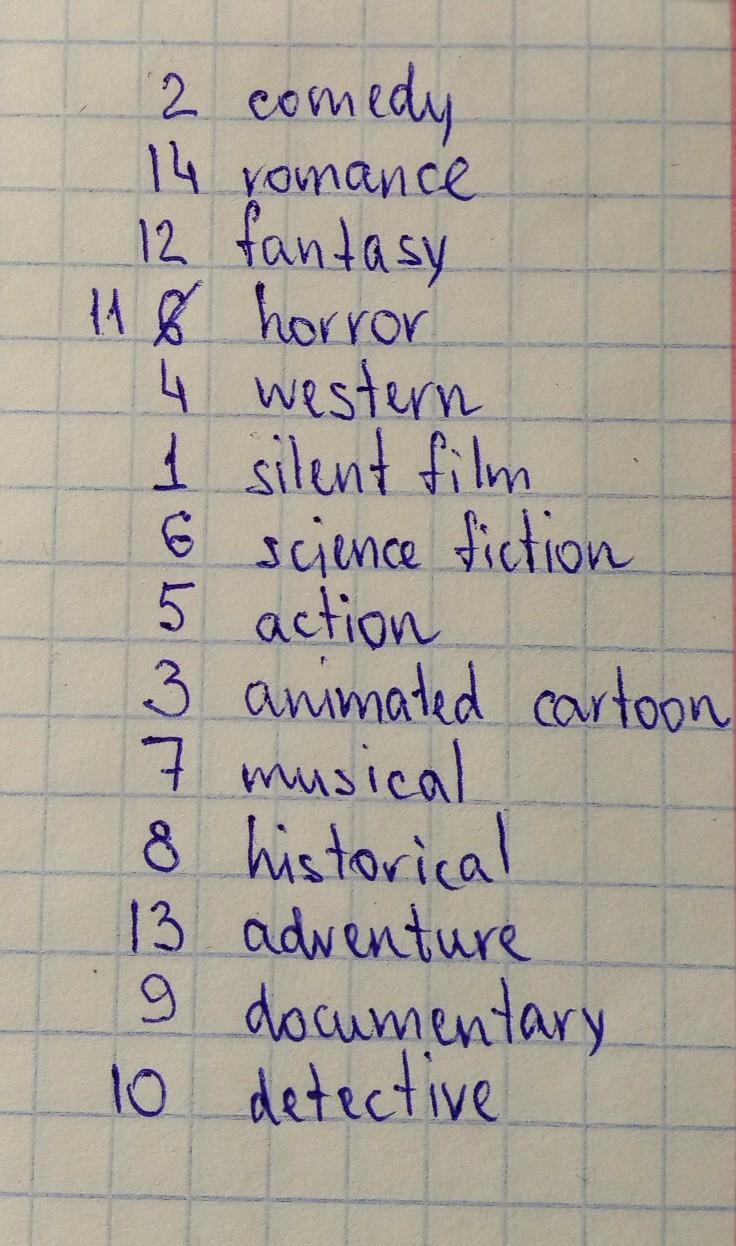 2 comedy
14 romance
12 fantasy
11 horror
4 western
1 silent film
6 science fiction
5 action
3 animated cartoon
7 musical
8 historical
13 adventure
9 documentary
10 detective